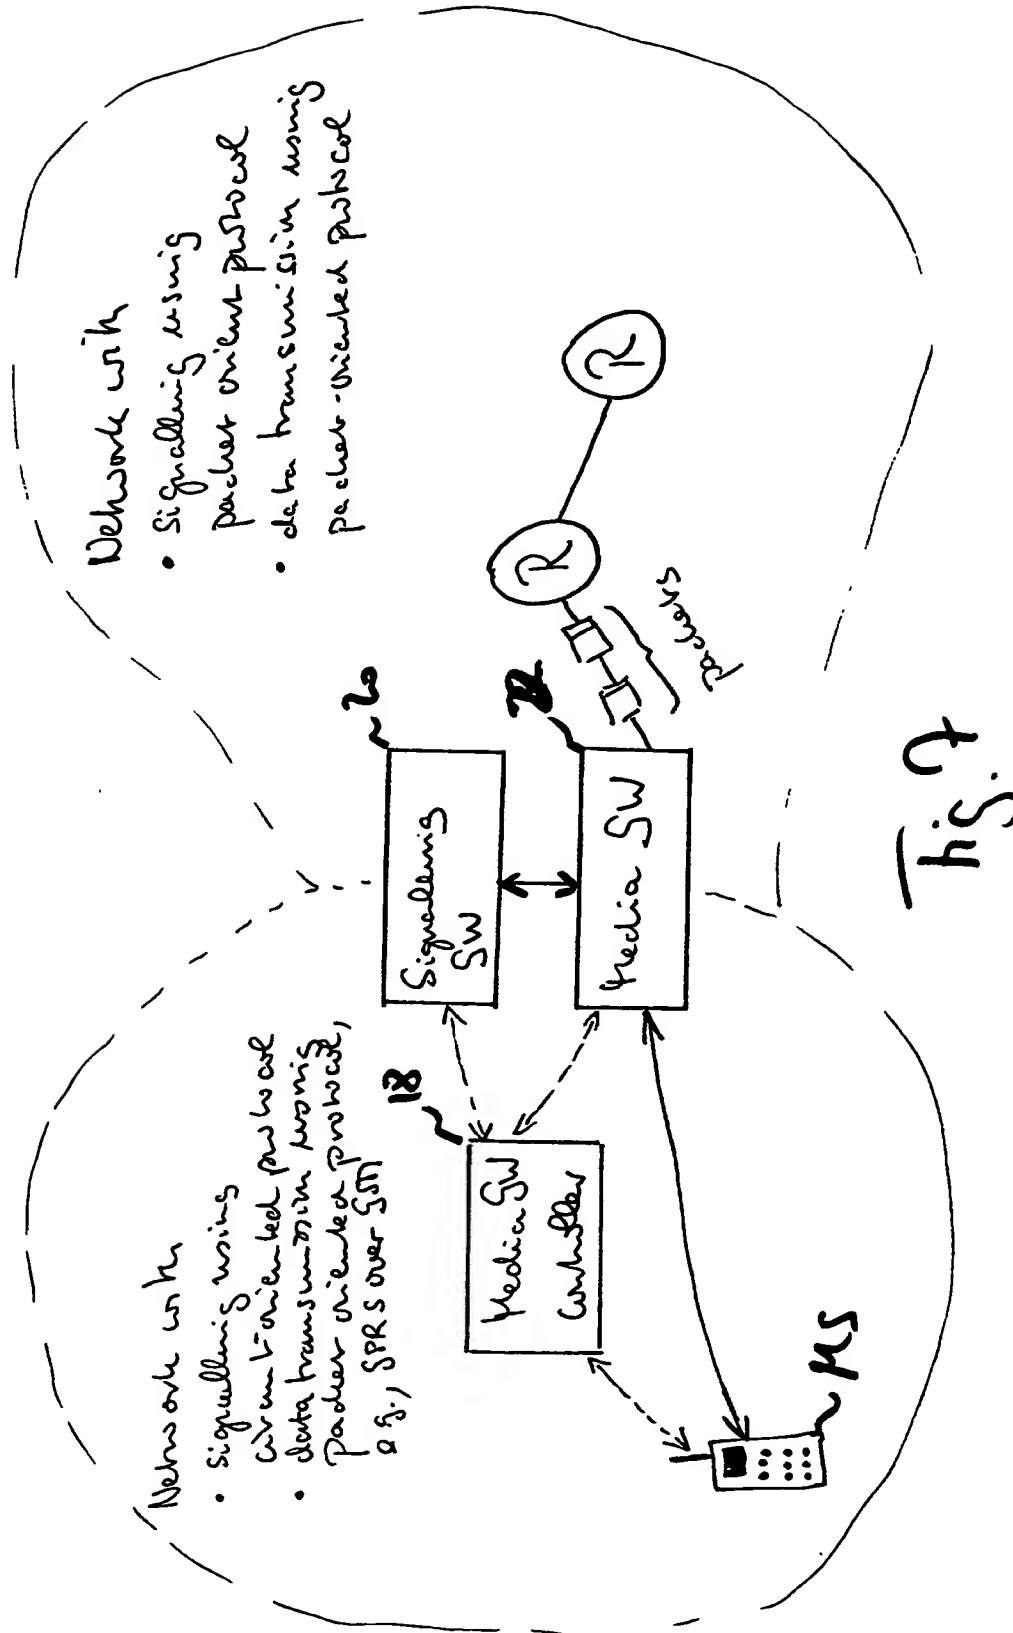 Network with
• signalling using
circuit-oriented protocol
• data transmission using
packet oriented protocol,
e.g., GPRS over GSM
Network with
• signalling using
packet orient protocol
• data transmission using
packet-oriented protocol
18
Media GW
Controller
20
Signalling
GW
22
Media GW
R
R
packets
MS
Fig. 7